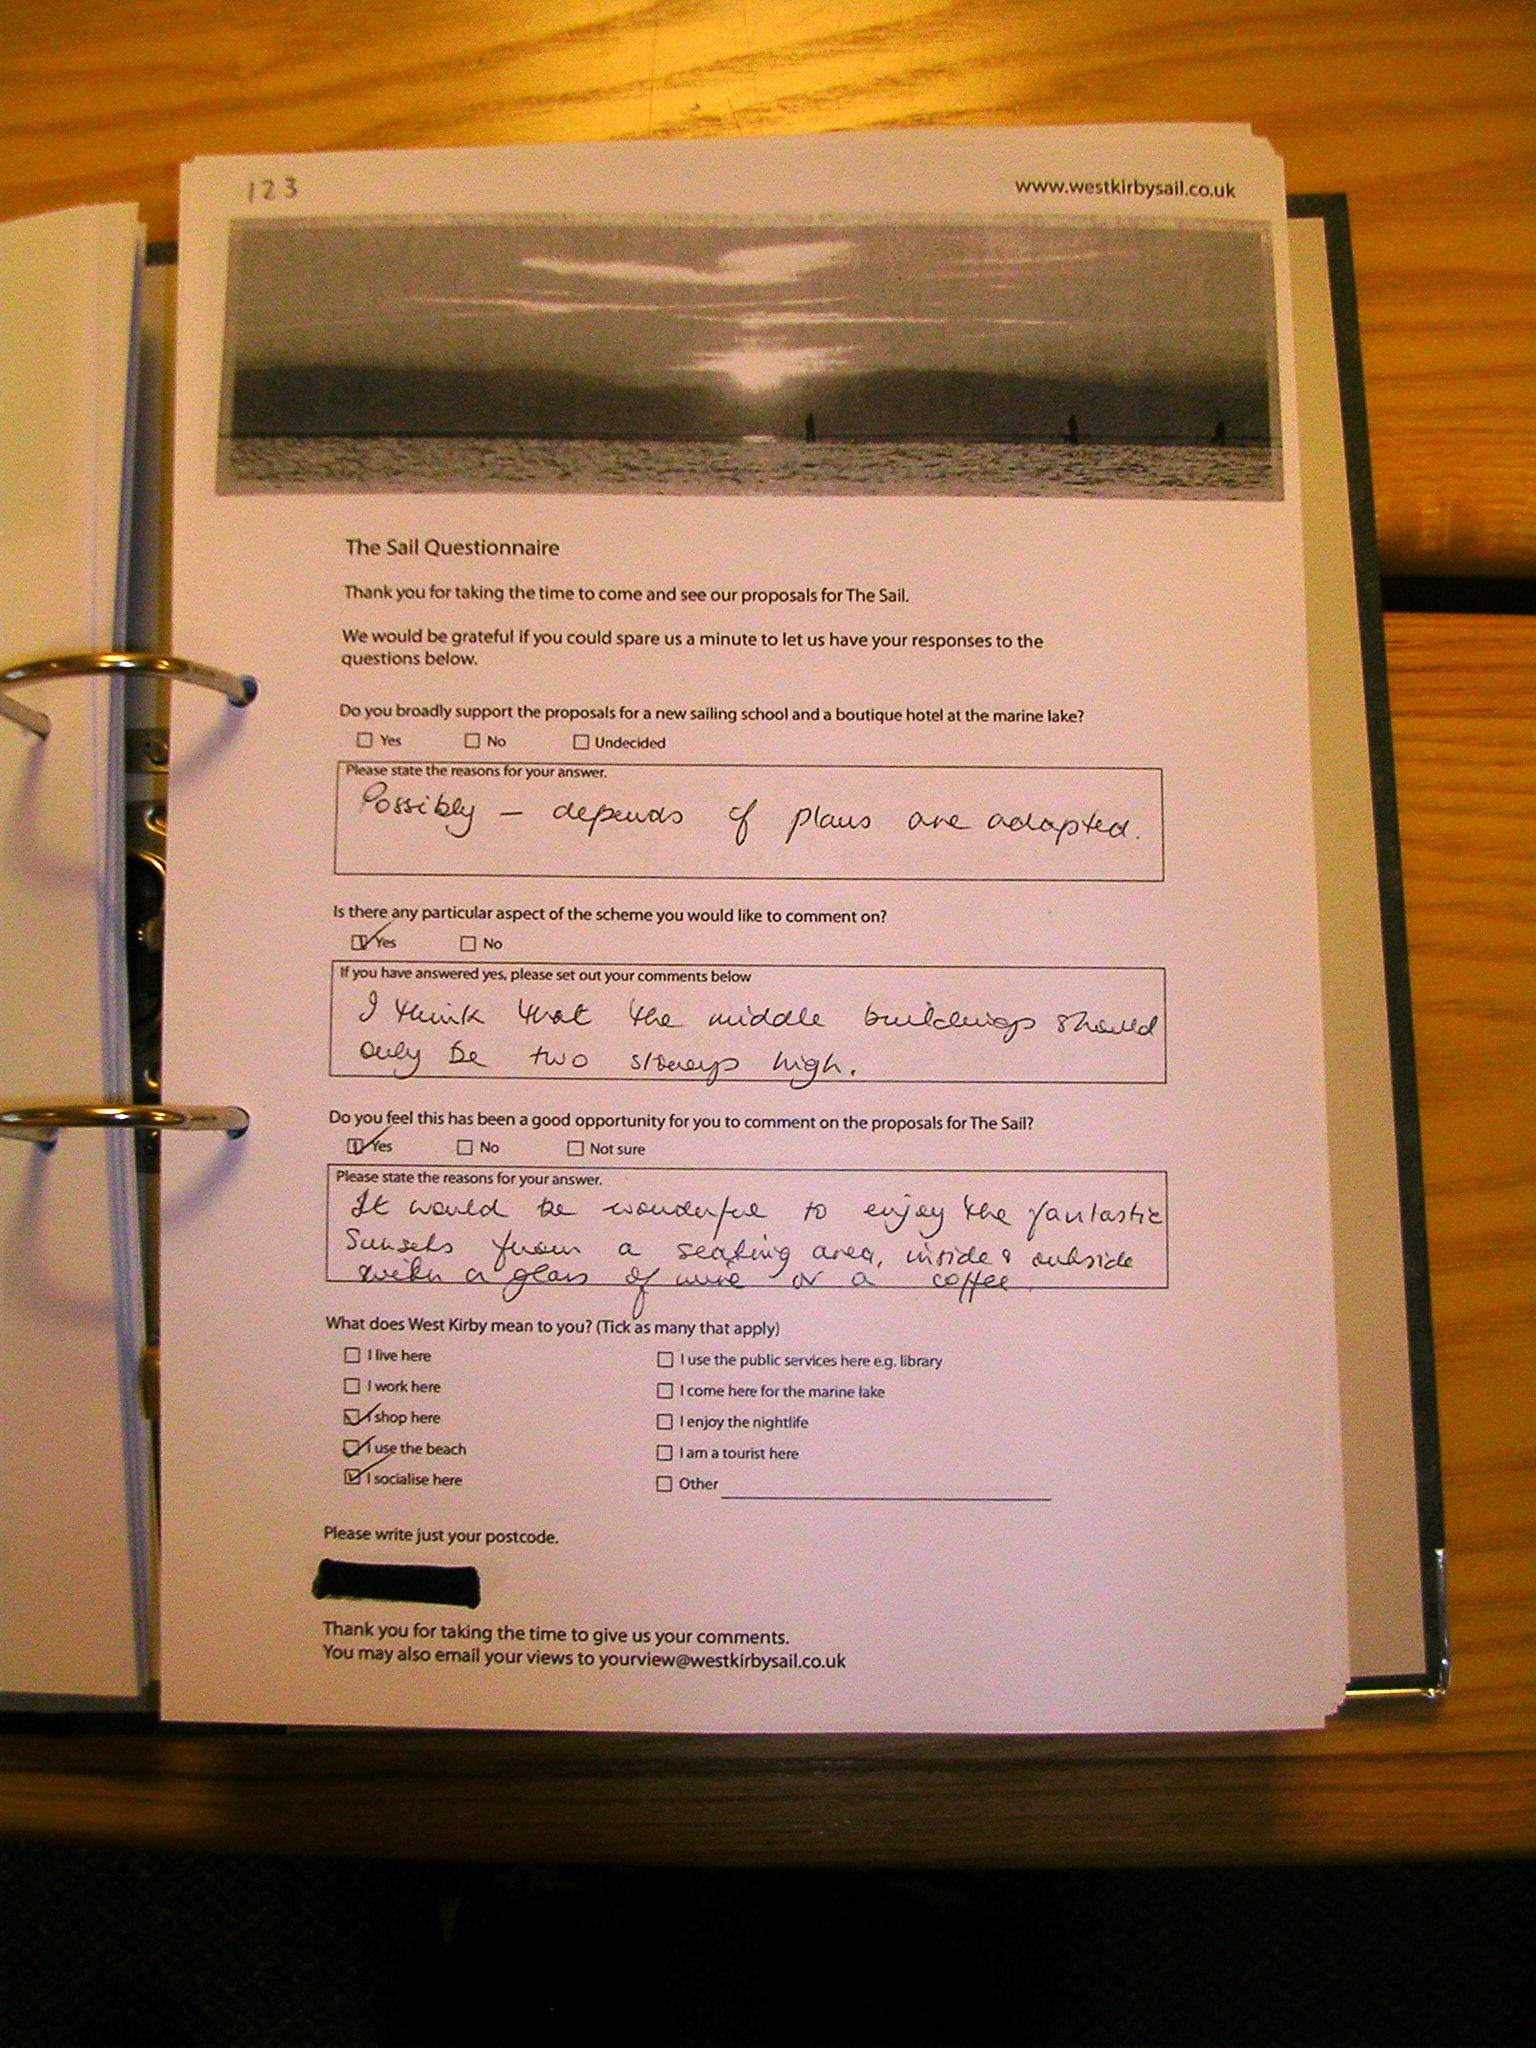 123
www.westkirbysail.co.uk
The Sail Questionnaire
Thank you for taking the time to come and see our proposals for The Sail.
We would be grateful if you could spare us a minute to let us have your responses to the
questions below.
Do you broadly support the proposals for a new sailing school and a boutique hotel at the marine lake?
Yes No Undecided
Please state the reasons for your answer.
Possibly - depends if plans are adapted.
Is there any particular aspect of the scheme you would like to comment on?
Yes No
If you have answered yes, please set out your comments below
I think that the middle buildings should
only be two storeys high.
Do you feel this has been a good opportunity for you to comment on the proposals for The Sail?
Yes No Not sure
Please state the reasons for your answer.
It would be wonderful to enjoy the fantastic
sunsets from a seating area, inside & outside
with a glass of wine or a coffee.
What does West Kirby mean to you? (Tick as many that apply)
I live here I use the public services here e.g. library
I work here I come here for the marine lake
I shop here I enjoy the nightlife
I use the beach I am a tourist here
I socialise here Other
Please write just your postcode.
Thank you for taking the time to give us your comments.
You may also email your views to yourview@westkirbysail.co.uk